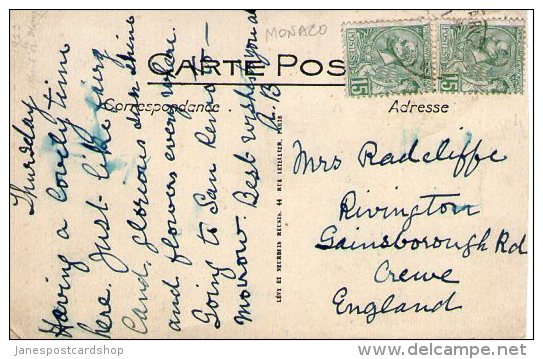 MONACO
CARTE POS
Correspondance
Adresse
Thursday
Having a lovely time
here. Just like fairy
land, glorious sunshine
and flowers everywhere
Going to San Remo to-
morrow. Best wishes
R. B.
LÉVY ET NEURDEIN RÉUNIS, 44 RUE LETELLIER, PARIS
15
15
Mrs Radcliffe
Rivington
Gainsborough Rd
Crewe
England
janespostcardshop
delcampe.net